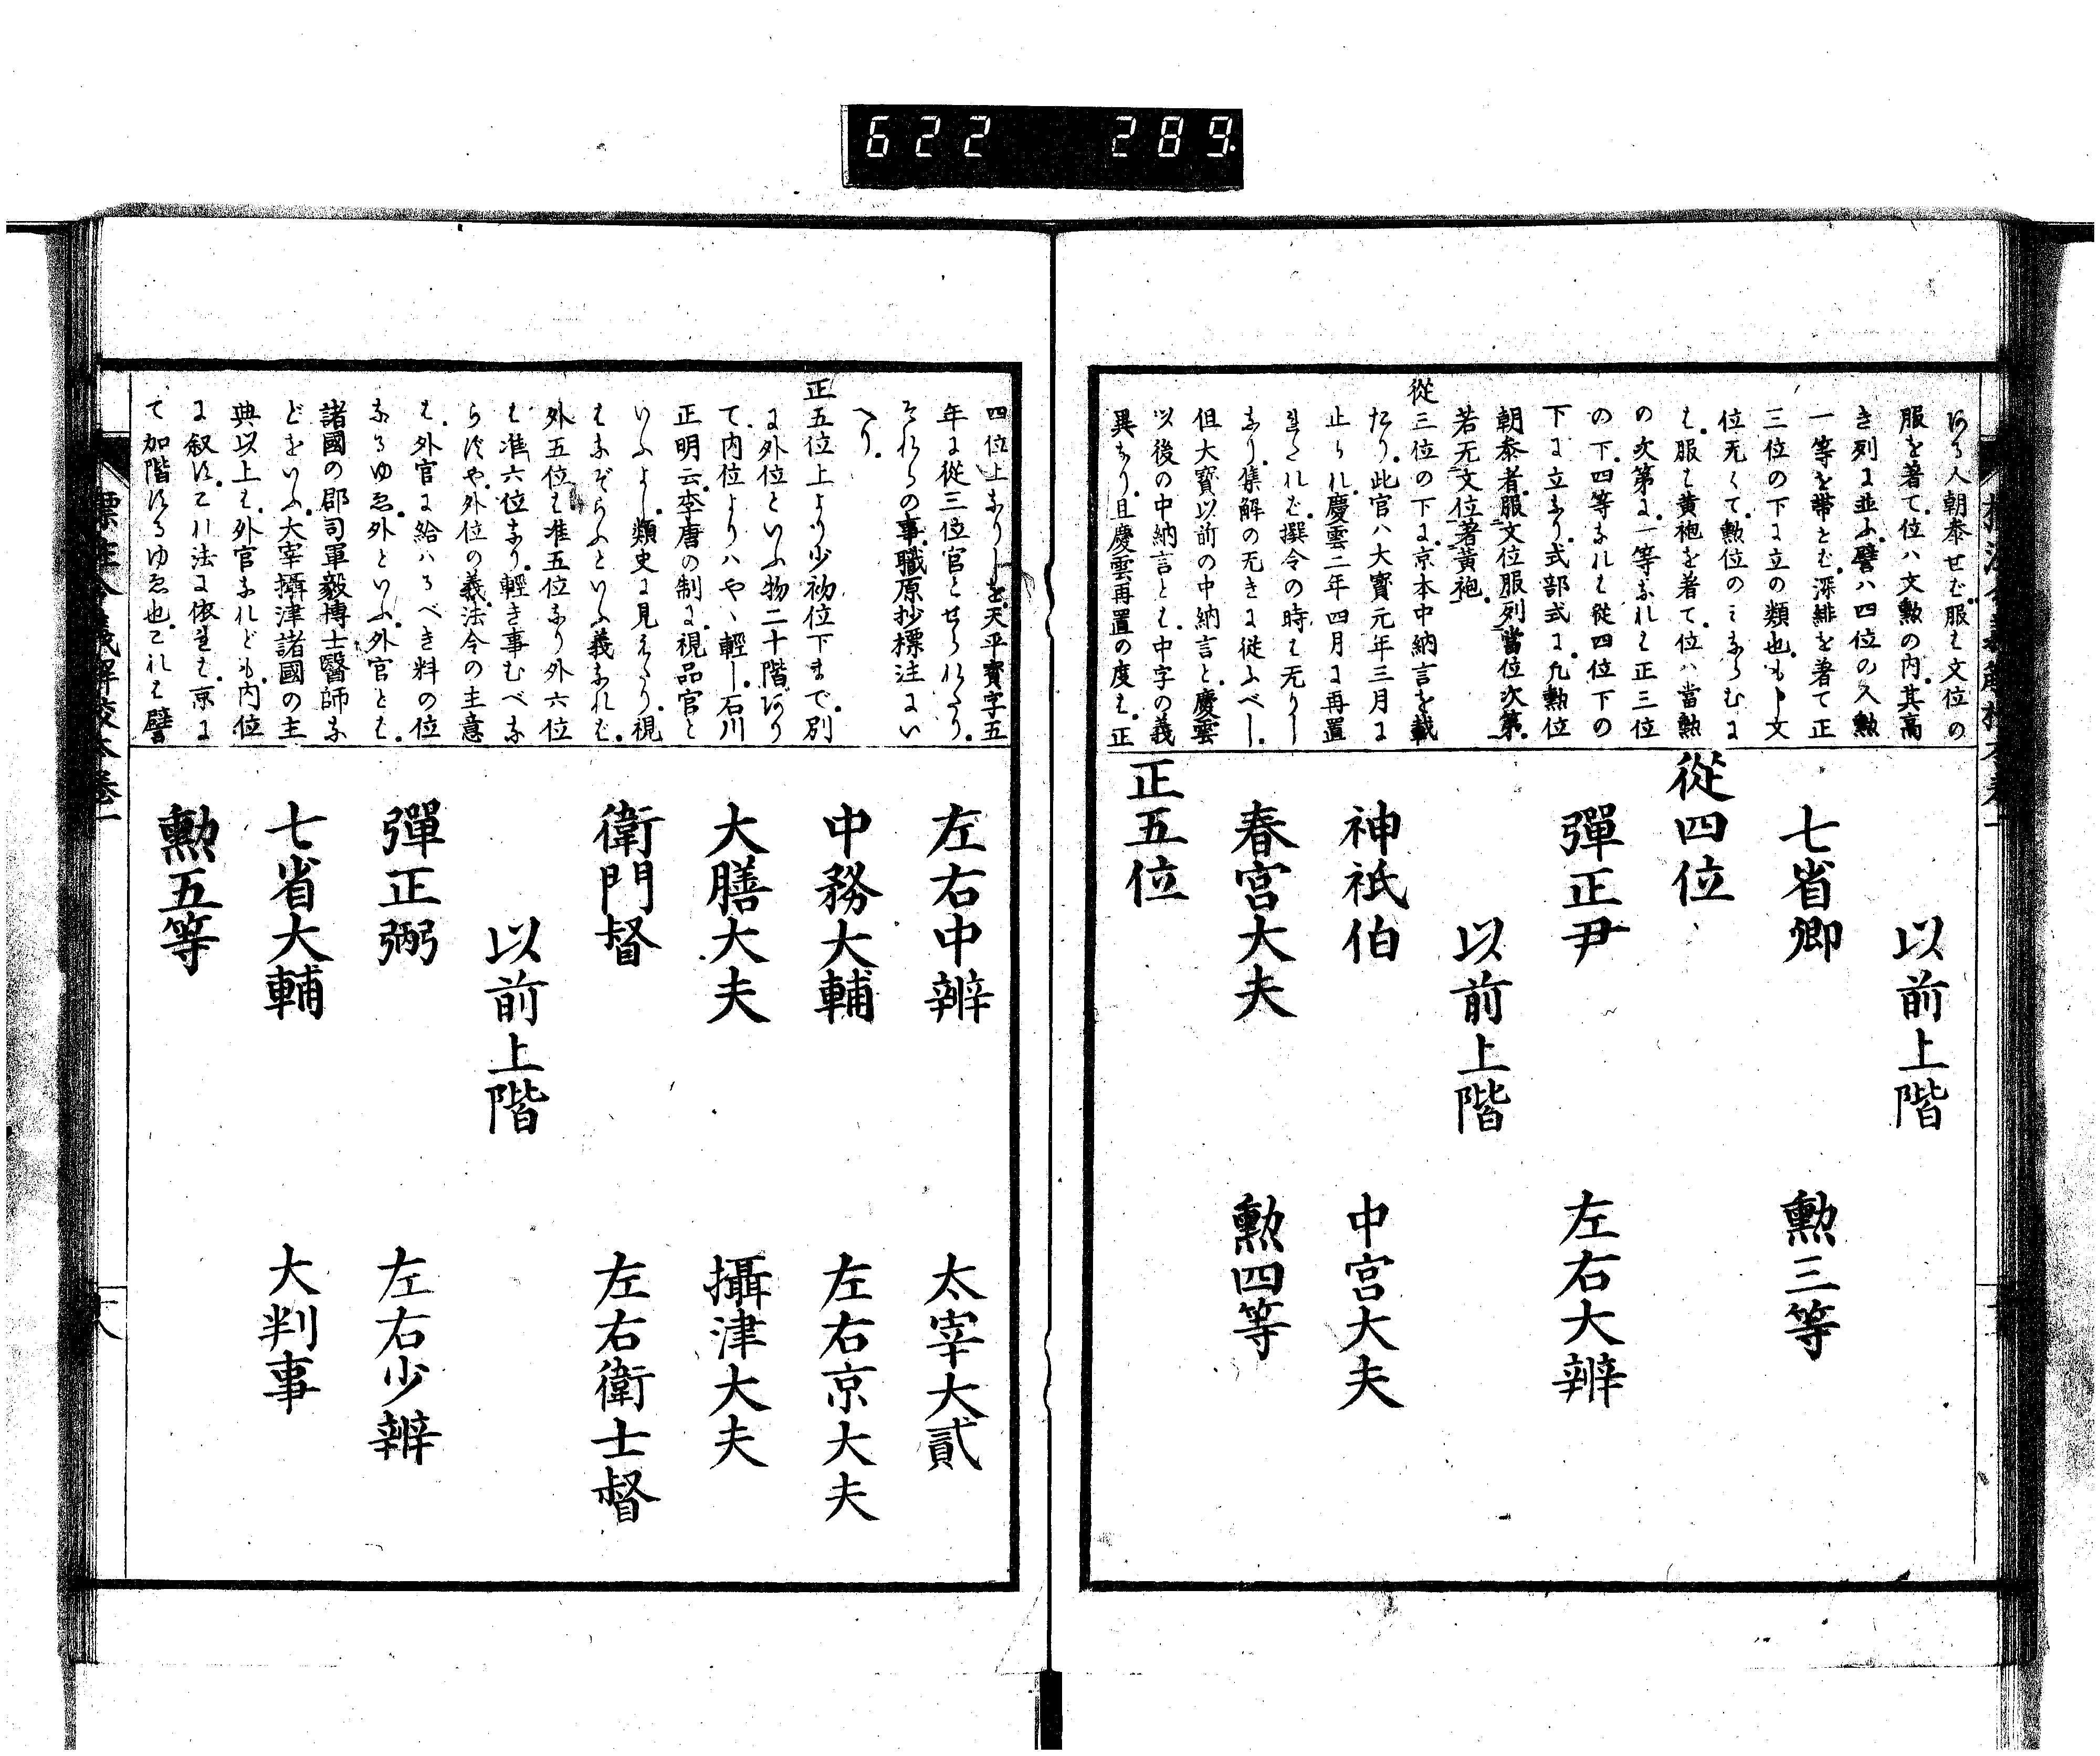 622 289
ある人朝参せば。服は文位の
服を著て。位ハ文勲の内。其高
き列に並ふ。譬ハ四位の人勲
一等を帯とむ。深緋を著て正
三位の下に立の類也。もし文
位无くて。勲位のみならむに
は。服は黄袍を著て。位ハ當勲
の次第に。一等なれは正三位
の下。四等なれは従四位下の
下に立なり。式部式に。凡勲位
朝参者。服文位服列當位次第。
若无文位著黃袍。
從三位の下に。京本中納言を載
たり。此官ハ大寶元年三月に
止られ。慶雲二年四月に再置
れたれば。撰令の時は无りし
なり。集解の无きに従ふべし。
但大寶以前の中納言と。慶雲
以後の中納言とは。中字の義
異なり。且慶雲再置の度は。正
以前上階
七省卿 勲三等
從四位
彈正尹 左右大辨
以前上階
神祇伯 中宮大夫
春宮大夫 勲四等
正五位
四位上なりしを。天平寶字五
年に從三位官とせられたり。
それらの事。職原抄標注にい
へり。
正五位上より少初位下まで。別
に外位といふ物二十階ありて
て。内位よりハやゝ輕し。石川
正明云。李唐の制に。視品官と
いふよし。類史に見えたり。視
はなぞらふといふ義なれば。
外五位は准五位なり外六位
は准六位なり。輕き事むべな
らずや。外位の義。法令の主意
は。外官に給ハるべき料の位
なるゆゑ。外といふ。外官とは。
諸國の郡司軍毅博士醫師な
どをいふ。大宰攝津諸國の主
典以上は。外官なれども。内位
に叙す。これ法に依れば。京に
て加階するゆゑ也。これは譬
左右中辨 太宰大貳
中務大輔 左右京大夫
大膳大夫 攝津大夫
衛門督 左右衛士督
以前上階
彈正弼 左右少辨
七省大輔 大判事
勲五等
標注令義解校本卷一